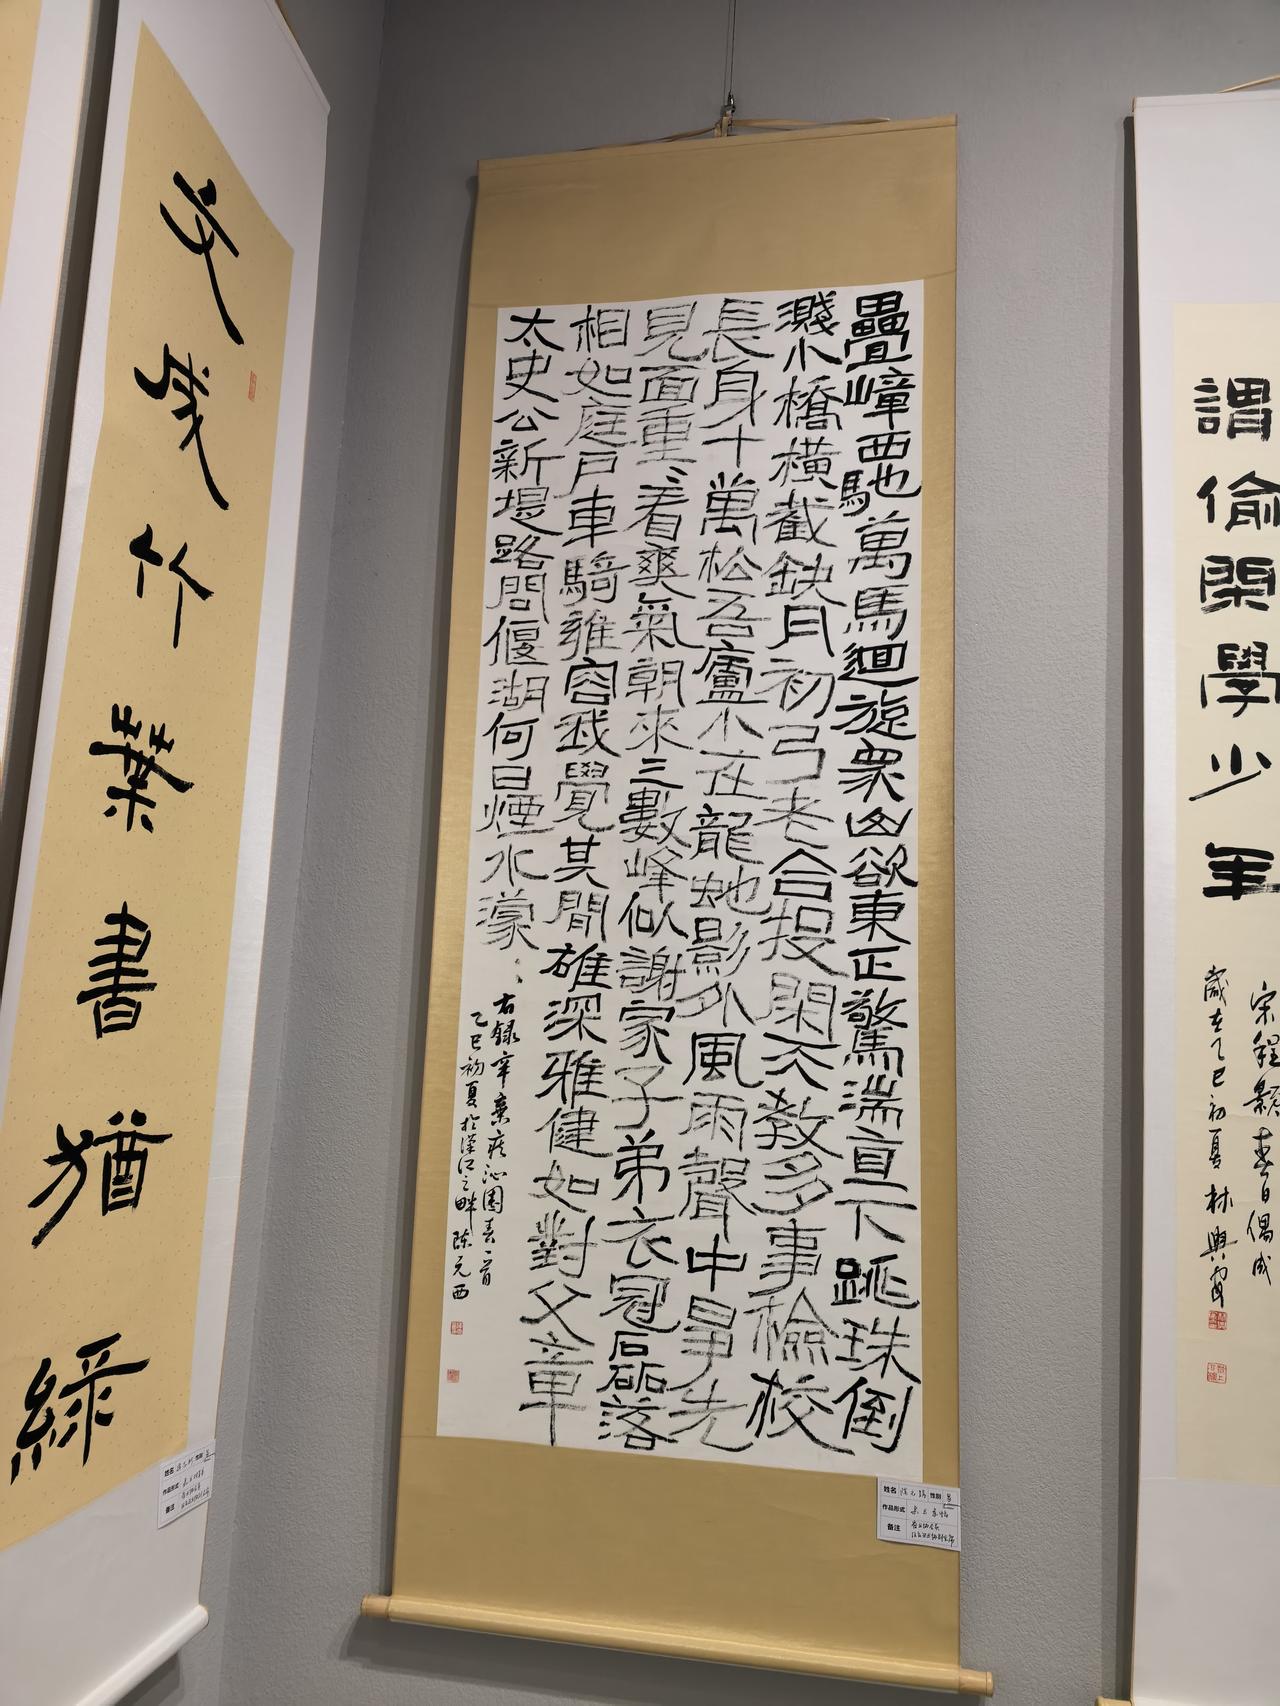 謂偷閑學少年
宋程顥春日偶成
歲在乙巳初夏林興
疊嶂西馳萬馬迴旋眾山欲東正驚湍直下跳珠倒
濺小橋橫截缺月初弓老合投閑天教多事檢校
長身十萬松吾廬小在龍蛇影外風雨聲中爭先
見面重〻看爽氣朝來三數峰似謝家子弟衣冠磊落
相如庭戶車騎雍容我覺其間雄深雅健如對父章
太史公新堤路問偃湖何日煙水濛〻
右録辛棄疾沁園春一首
乙巳初夏於漢江之畔 陈元西
姓名 性别 男
作品形式
备注
文成竹葉書猶綠
姓名 性别
作品形式
备注